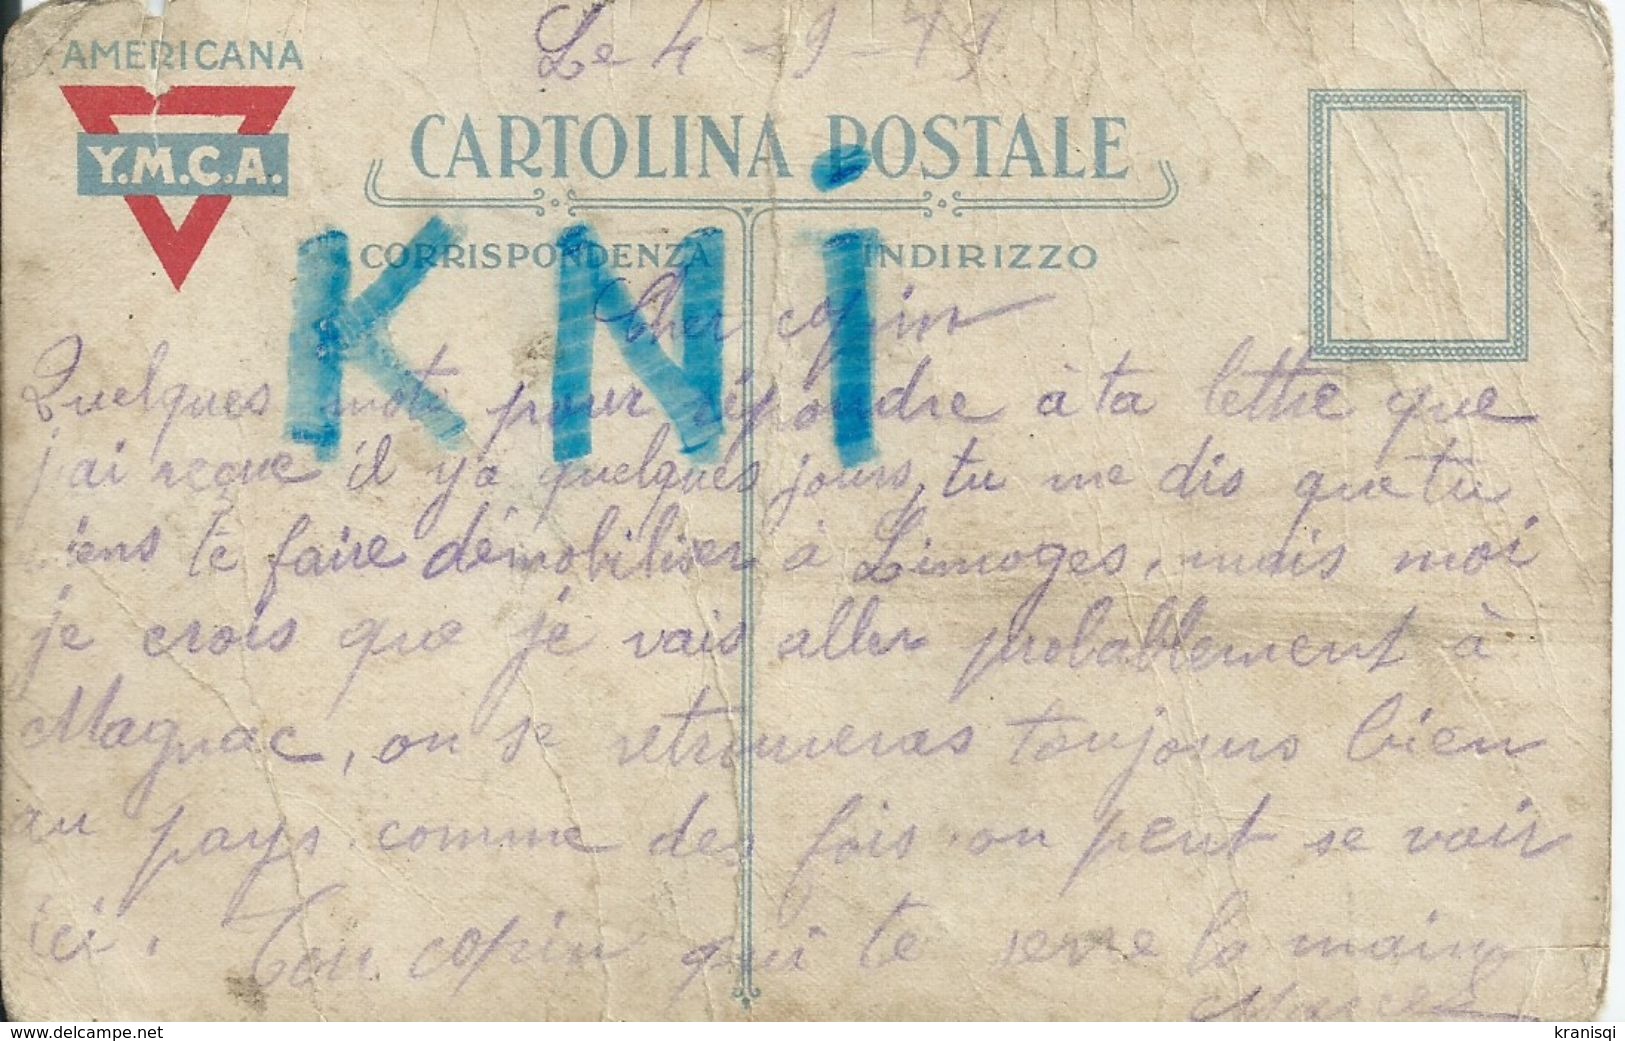 Le 4-9-19
AMERICANA
Y.M.C.A.
CARTOLINA POSTALE
CORRISPONDENZA
INDIRIZZO
KNi
Cher copin
Quelques mots pour répondre à ta lettre que
j'ai reçue il y a quelques jours, tu me dis que tu
viens te faire démobiliser à Limoges, mais moi
je crois que je vais aller probablement à
Magnac, on se retrouveras toujours bien
au pays. comme des fois on peut se voir
ici. Ton copin qui te serre la main
Marcel
www.delcampe.net
kranisqi